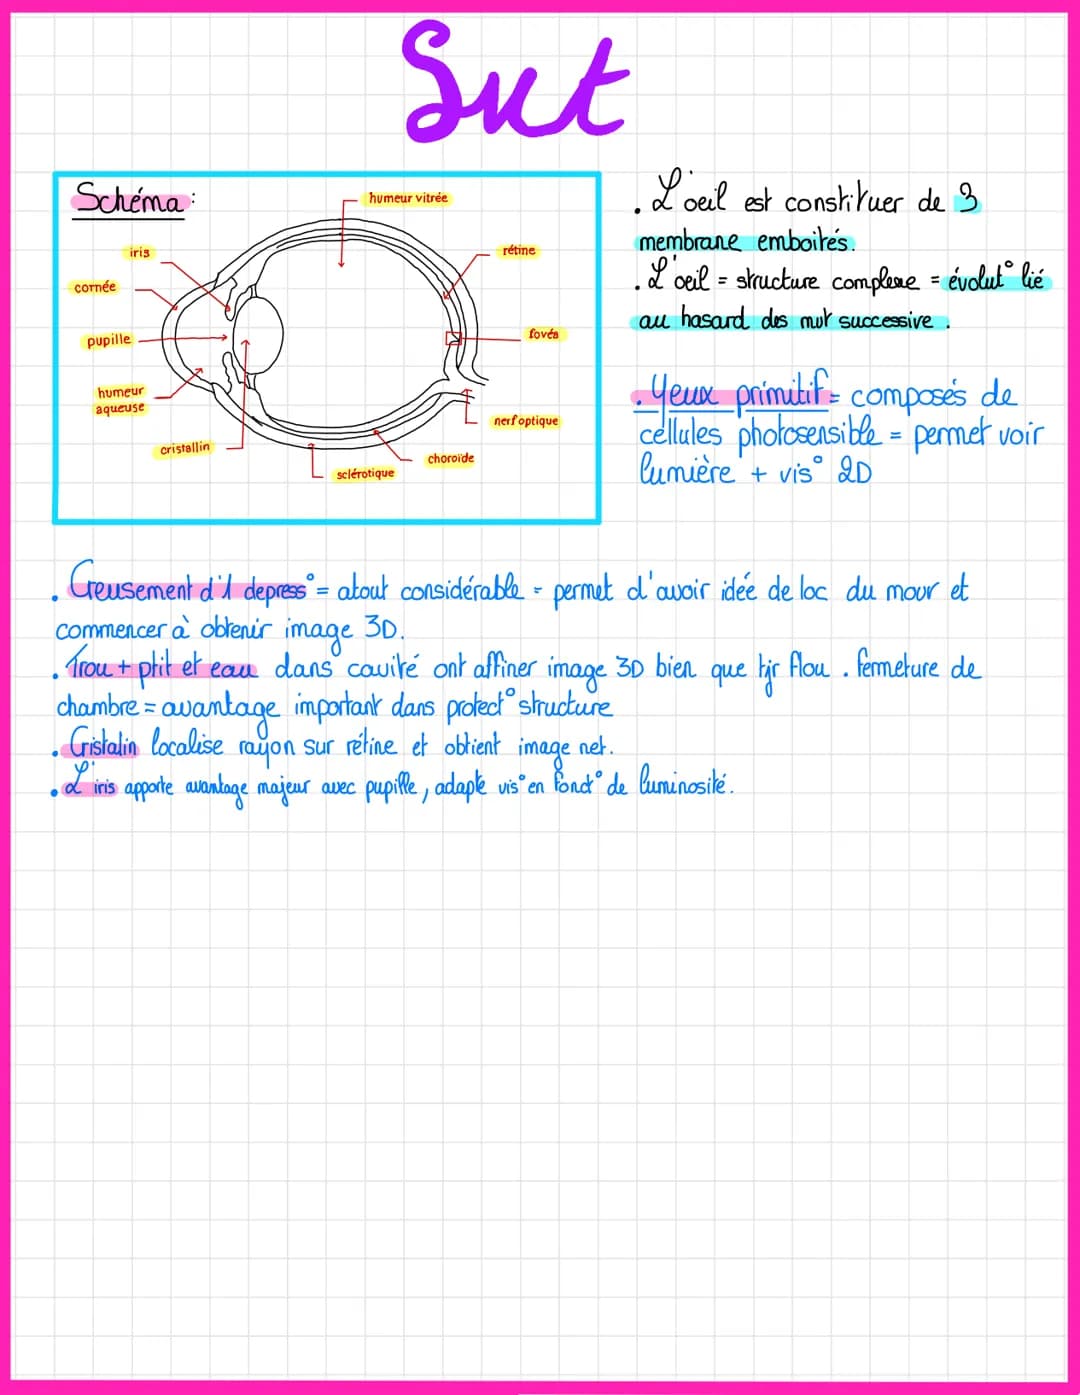 Sut
Schéma :
humeur vitrée
iris
rétine
cornée
pupille
fovéa
humeur
aqueuse
nerf optique
cristallin
choroïde
sclérotique
. L'oeil est constituer de 3
membrane emboités.
. L'oeil = structure complexe = évolut° lié
au hasard des mut successive .
. Yeux primitif = composés de
cellules photosensible = permet voir
lumière + vis° 2D
. Creusement d'1 depress° = atout considérable = permet d'avoir idée de loc du mouv et
commencer à obtenir image 3D.
. Trou + ptit et eau dans cavité ont affiner image 3D bien que tjr flou . fermeture de
chambre = avantage important dans protect° structure
. Cristalin localise rayon sur rétine et obtient image net.
. L'iris apporte avantage majeur avec pupille, adapte vis° en fonct° de luminosité.